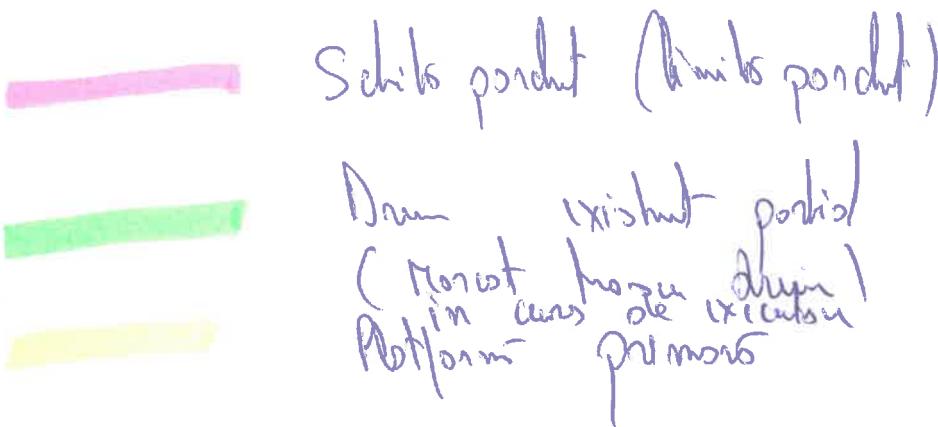 Schiță parchet (limită parchet)
Drum existent parțial
(Marcat traseu drum)
în curs de execuție
Platformă primară